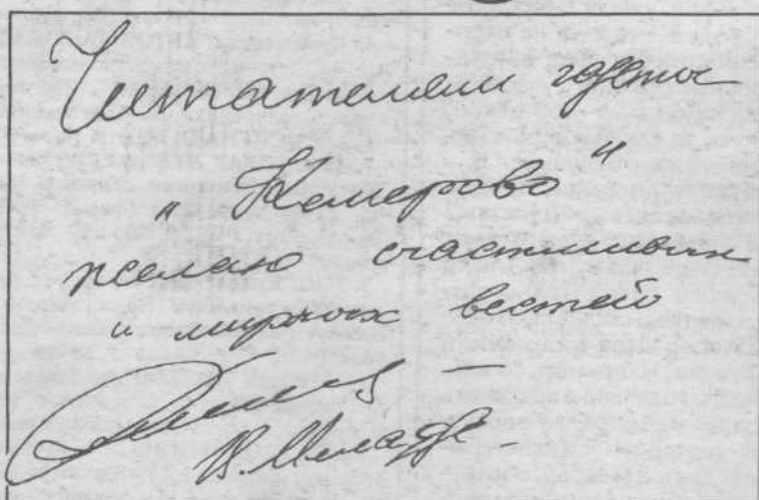 Читателям газеты
„Кемерово“
желаю счастливых
и мирных вестей
В. Меладзе